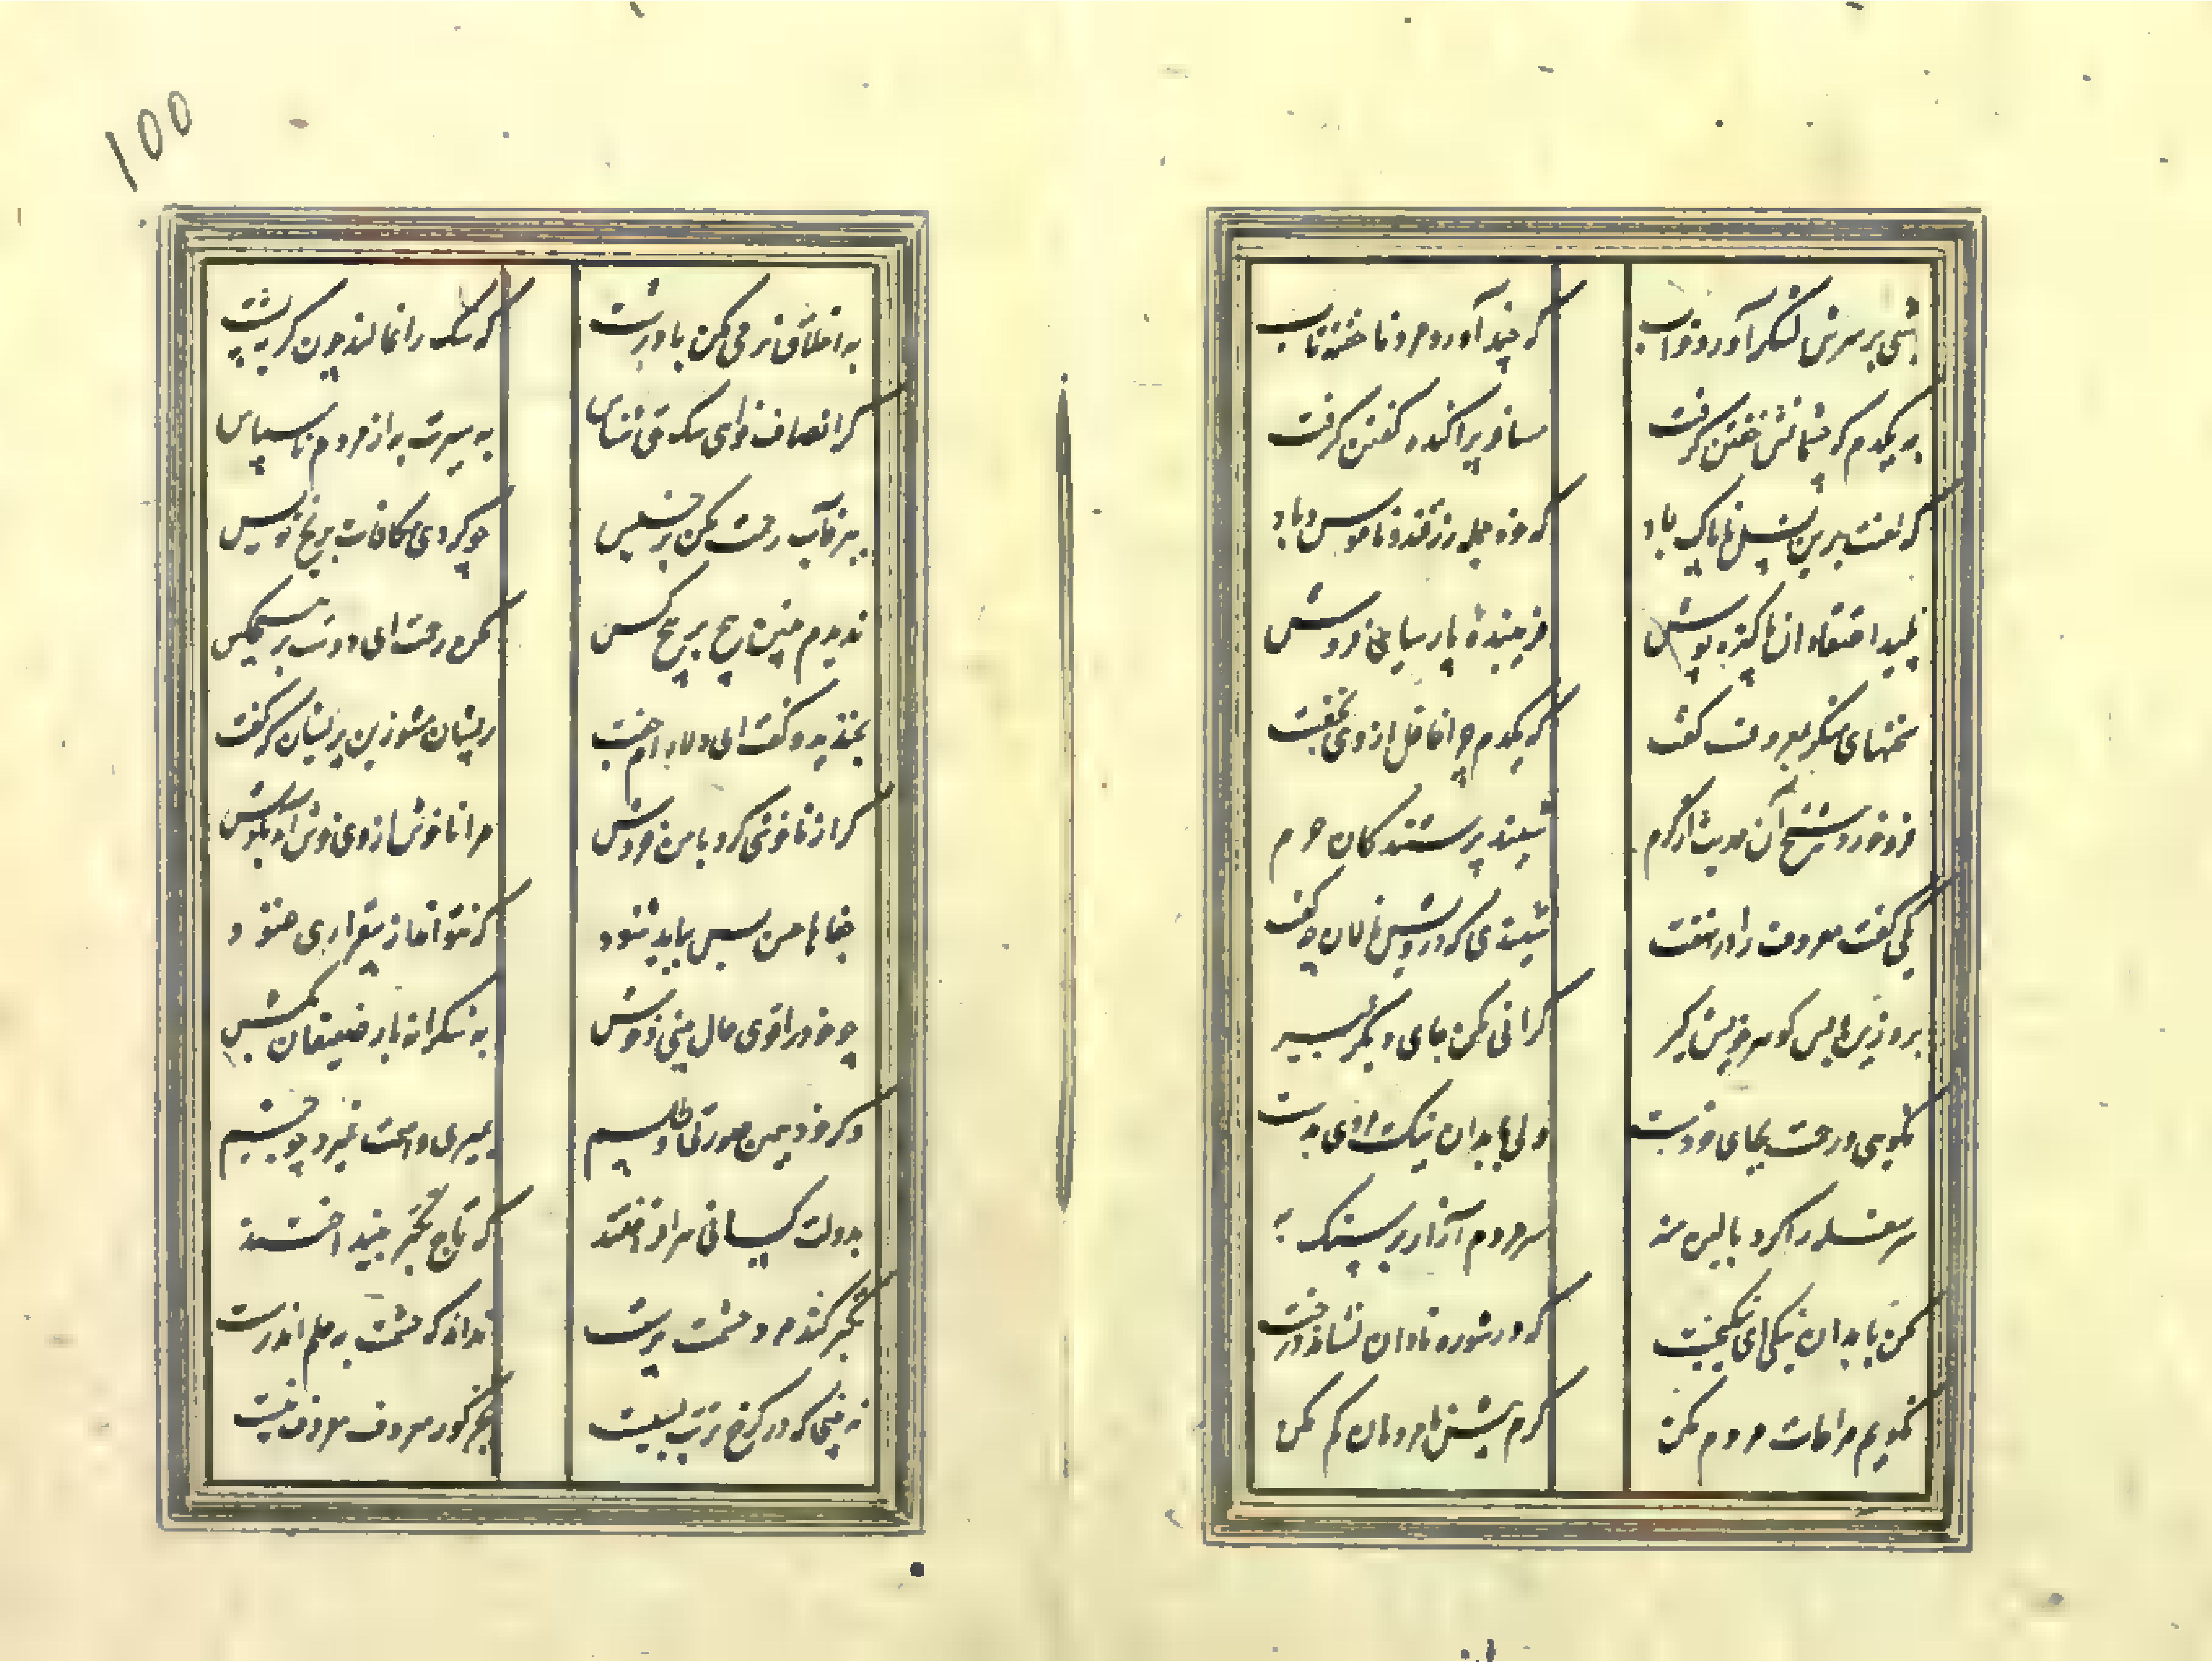 شبی بر سرش لشکر آورد خواب
که چند آورد مرد ناخفته تاب
به یکدم که چشمانش خفتن گرفت
مسافر پراکنده گفتن گرفت
که لعنت برین نسل ناپاک باد
که ناموس و باد
پلید اعتقادان پاکیزه پوش
فریبنده پارسایی فروش
سخنهای منکر بمعروف گفت
که یکدم چرا غافل از وی بخفت
فرو خورد شیخ آن حدیث از کرم
شنیدند پرستندکان حرم
یکی گفت معروف را در نهفت
شنیدی که درویش نالان چه گفت
برو زین سپس کو سر خویش گیر
گرانی مکن جای دیگر بمیر
نکویی و رحمت بجای خودست
ولی با بدان نیک مردی بدست
سر سفله را گرد بالین منه
سر مردم آزار بر سنگ به
مکن با بدان نیکی ای نیکبخت
که در شوره نادان نشاند درخت
نگویم مراعات مردم مکن
کرم پیش نامردمان گم مکن
به اخلاق نرمی مکن با درشت
که سگ را نمالند چون گربه پشت
گر انصاف خواهی سگ حق شناس
به سیرت به از مردم ناسپاس
ببرفاب رحمت مکن بر خسیس
چو کردی مکافات بر یخ نویس
ندیدم چنین پیچ بر پیچ کس
مکن رحمت ای دوست بر هیچکس
بخندید و گفت ای دلارام جفت
پریشان مشو زین پریشان که گفت
گر از ناخوشی کرد با من خروش
مرا ناخوش از وی خوش آمد بگوش
جفای چنین کس بباید شنود
که نتواند از بیقراری غنود
چو خود را قوی حال بینی و خوش
به شکرانه بار ضعیفان بکش
وگر خود همین صورتی طلسم
بمیری و اسمت بمیرد چو جسم
بدولت کسانی سر افراختند
که تاج تکبر بینداختند
تکبر کند مرد حشمت پرست
نداند که حشمت به حلم اندرست
نه بینی که در کرخ تربت بسیست
بجز گور معروف معروف نیست
100